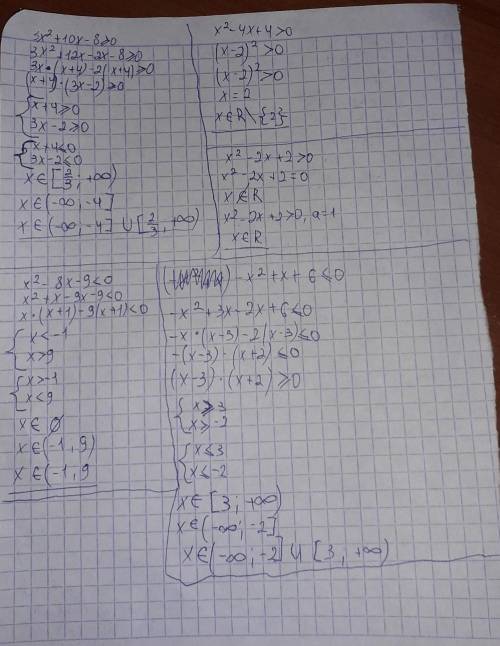 3x²+10x-8≥0
3x²+12x-2x-8≥0
3x•(x+4)-2(x+4)≥0
(x+4)•(3x-2)≥0
{x+4≥0
3x-2≥0
{x+4≤0
3x-2≤0
x∈[2/3; +∞)
x∈(-∞; -4]
x∈(-∞; -4] ∪ [2/3, +∞)
x²-4x+4>0
(x-2)²>0
(x-2)²>0
x=2
x∈R\{2}
x²-2x+2>0
x²-2x+2=0
x∉R
x²-2x+2>0, a=1
x∈R
x²-8x-9<0
x²+x-9x-9<0
x•(x+1)-9(x+1)<0
{x<-1
x>9
{x>-1
x<9
x∈∅
x∈(-1, 9)
x∈(-1, 9
-x²+x+6≤0
-x²+3x-2x+6≤0
-x•(x-3)-2(x-3)≤0
-(x-3)•(x+2)≤0
(x-3)•(x+2)≥0
{x≥3
x≥-2
{x≤3
x≤-2
x∈[3; +∞)
x∈(-∞; -2]
x∈(-∞; -2] ∪ [3; +∞)